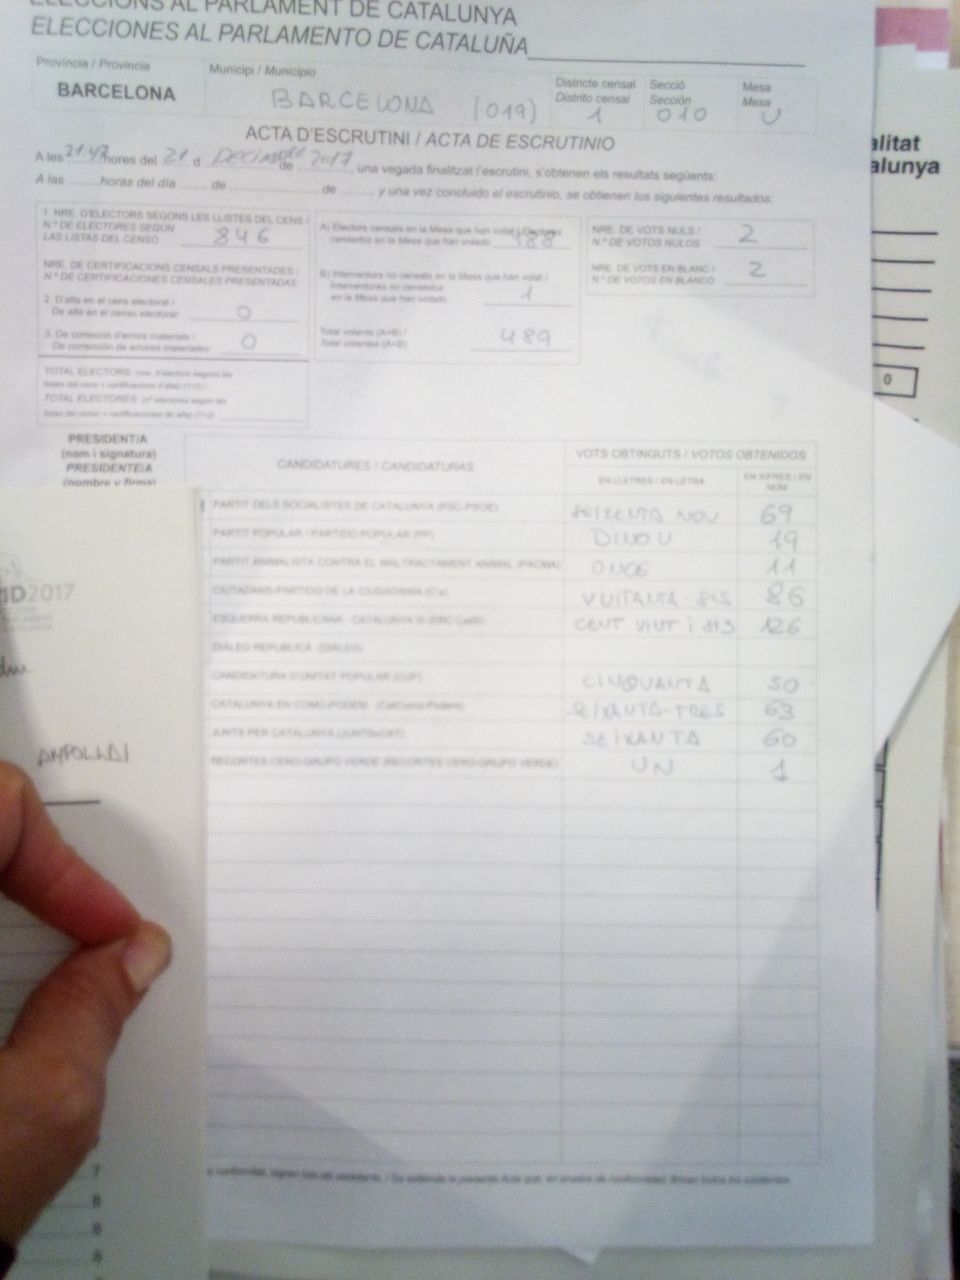 ELECCIONS AL PARLAMENT DE CATALUNYA
ELECCIONES AL PARLAMENTO DE CATALUÑA
Província / Provincia
BARCELONA
Municipi / Municipio
BARCELONA (019)
Districte censal
Distrito censal
1
Secció
Sección
010
Mesa
Mesa
U
ACTA D'ESCRUTINI / ACTA DE ESCRUTINIO
A les 21:47 hores del 21 d DECIMBRE de 2017, una vegada finalitzat l'escrutini, s'obtenen els resultats següents:
A las ........ horas del día ...... de .................... de ........ y una vez concluido el escrutinio, se obtienen los siguientes resultados:
1. NRE. D'ELECTORS SEGONS LES LLISTES DEL CENS /
N.º DE ELECTORES SEGÚN
LAS LISTAS DEL CENSO 846
NRE. DE CERTIFICACIONS CENSALS PRESENTADES /
N.º DE CERTIFICACIONES CENSALES PRESENTADAS
2. D'alta en el cens electoral /
De alta en el censo electoral 0
3. De correcció d'errors materials /
De corrección de errores materiales 0
TOTAL ELECTORS
TOTAL ELECTORES
A) Electors censats en la Mesa que han votat / Electores
censados en la Mesa que han votado 488
B) Interventors no censats en la Mesa que han votat /
Interventores no censados
en la Mesa que han votado 1
Total votants (A+B) /
Total votantes (A+B) 489
NRE. DE VOTS NULS /
N.º DE VOTOS NULOS 2
NRE. DE VOTS EN BLANC /
N.º DE VOTOS EN BLANCO 2
PRESIDENT/A
(nom i signatura)
PRESIDENTE/A
(nombre y firma)
CANDIDATURES / CANDIDATURAS
VOTS OBTINGUTS / VOTOS OBTENIDOS
EN LLETRES / EN LETRA
EN XIFRES / EN NÚM
PARTIT DELS SOCIALISTES DE CATALUNYA (PSC-PSOE) SEIXENTA NOU 69
PARTIT POPULAR / PARTIDO POPULAR (PP) DINOU 19
PARTIT ANIMALISTA CONTRA EL MALTRACTAMENT ANIMAL (PACMA) ONCE 11
CIUTADANS-PARTIDO DE LA CIUDADANÍA (Cs) VUITANTA-SIS 86
ESQUERRA REPUBLICANA - CATALUNYA SÍ (ERC-CatSí) CENT VINT i SIS 126
DIÀLEG REPÚBLICA (DIÀLEG)
CANDIDATURA D'UNITAT POPULAR (CUP) CINQUANTA 50
CATALUNYA EN COMÚ-PODEM (CatComú-Podem) SEIXANTA-TRES 63
JUNTS PER CATALUNYA (JUNTSxCAT) SEIXANTA 60
RECORTES CERO-GRUPO VERDE (RECORTES CERO-GRUPO VERDE) UN 1
conformitat, signen tots els assistents. / Se extiende la presente Acta que, en prueba de conformidad, firman todos los asistentes.
alitat
alunya
0
D2017
7
8